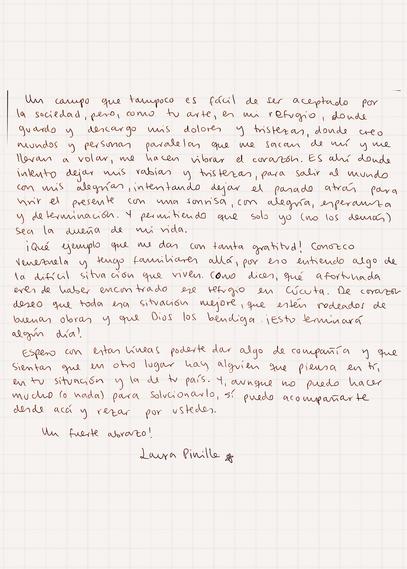 Un campo que tampoco es fácil de ser aceptado por
la sociedad, pero, como tu arte, es mi refugio, donde
guardo y descargo mis dolores y tristezas, donde creo
mundos y personas paralelas que me sacan de mí y me
llevan a volar, me hacen vibrar el corazón. Es ahí donde
intento dejar mis rabias y tristezas, para salir al mundo
con mis alegrías, intentando dejar el pasado atrás para
vivir el presente con una sonrisa, con alegría, esperanza
y determinación. Y permitiendo que solo yo (no los demás)
sea la dueña de mi vida.
¡Qué ejemplo que me das con tanta gratitud! Conozco
Venezuela y tengo familiares allá, por eso entiendo algo de
la difícil situación que viven. Como dices, qué afortunada
eres de haber encontrado ese refugio en Cúcuta. De corazón
deseo que toda esa situación mejore, que estén rodeados de
buenas obras y que Dios los bendiga. ¡Esto terminará
algún día!
Espero con estas líneas poderte dar algo de compañía y que
sientas que en otro lugar hay alguien que piensa en ti,
en tu situación y la de tu país. Y, aunque no puedo hacer
mucho (o nada) para solucionarlo, sí puedo acompañarte
desde acá y rezar por ustedes.
Un fuerte abrazo!
Laura Pinilla